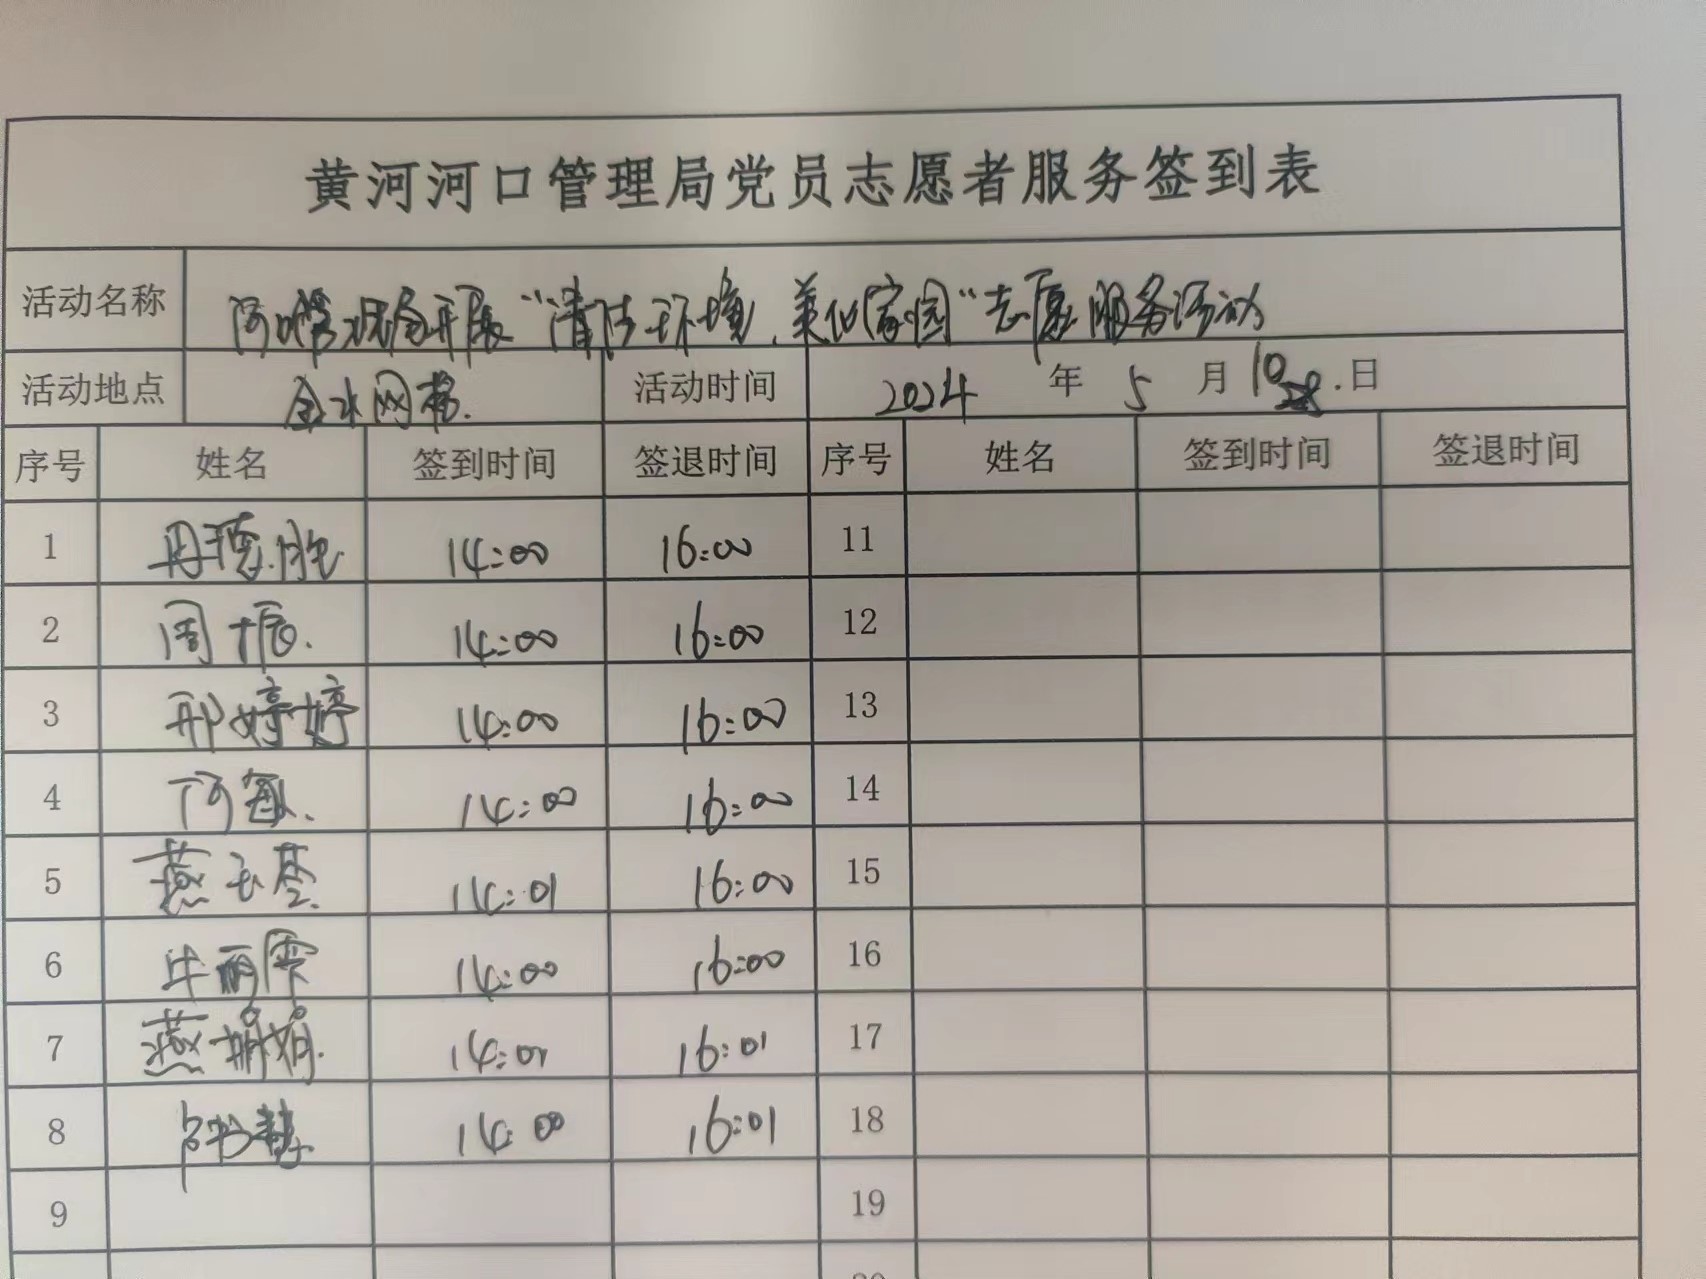 黄河河口管理局党员志愿者服务签到表
活动名称 河口管理局开展“清洁环境,美化家园”志愿服务活动
活动地点 金水网格. 活动时间 2024 年 5 月 10 日
序号 姓名 签到时间 签退时间 序号 姓名 签到时间 签退时间
1 14:00 16:00 11
2 周振. 14:00 16:00 12
3 邢婷婷 14:00 16:00 13
4 14:00 16:00 14
5 燕 14:01 16:00 15
6 毕丽霞 14:00 16:00 16
7 燕娟娟. 14:01 16:01 17
8 14:00 16:01 18
9 19